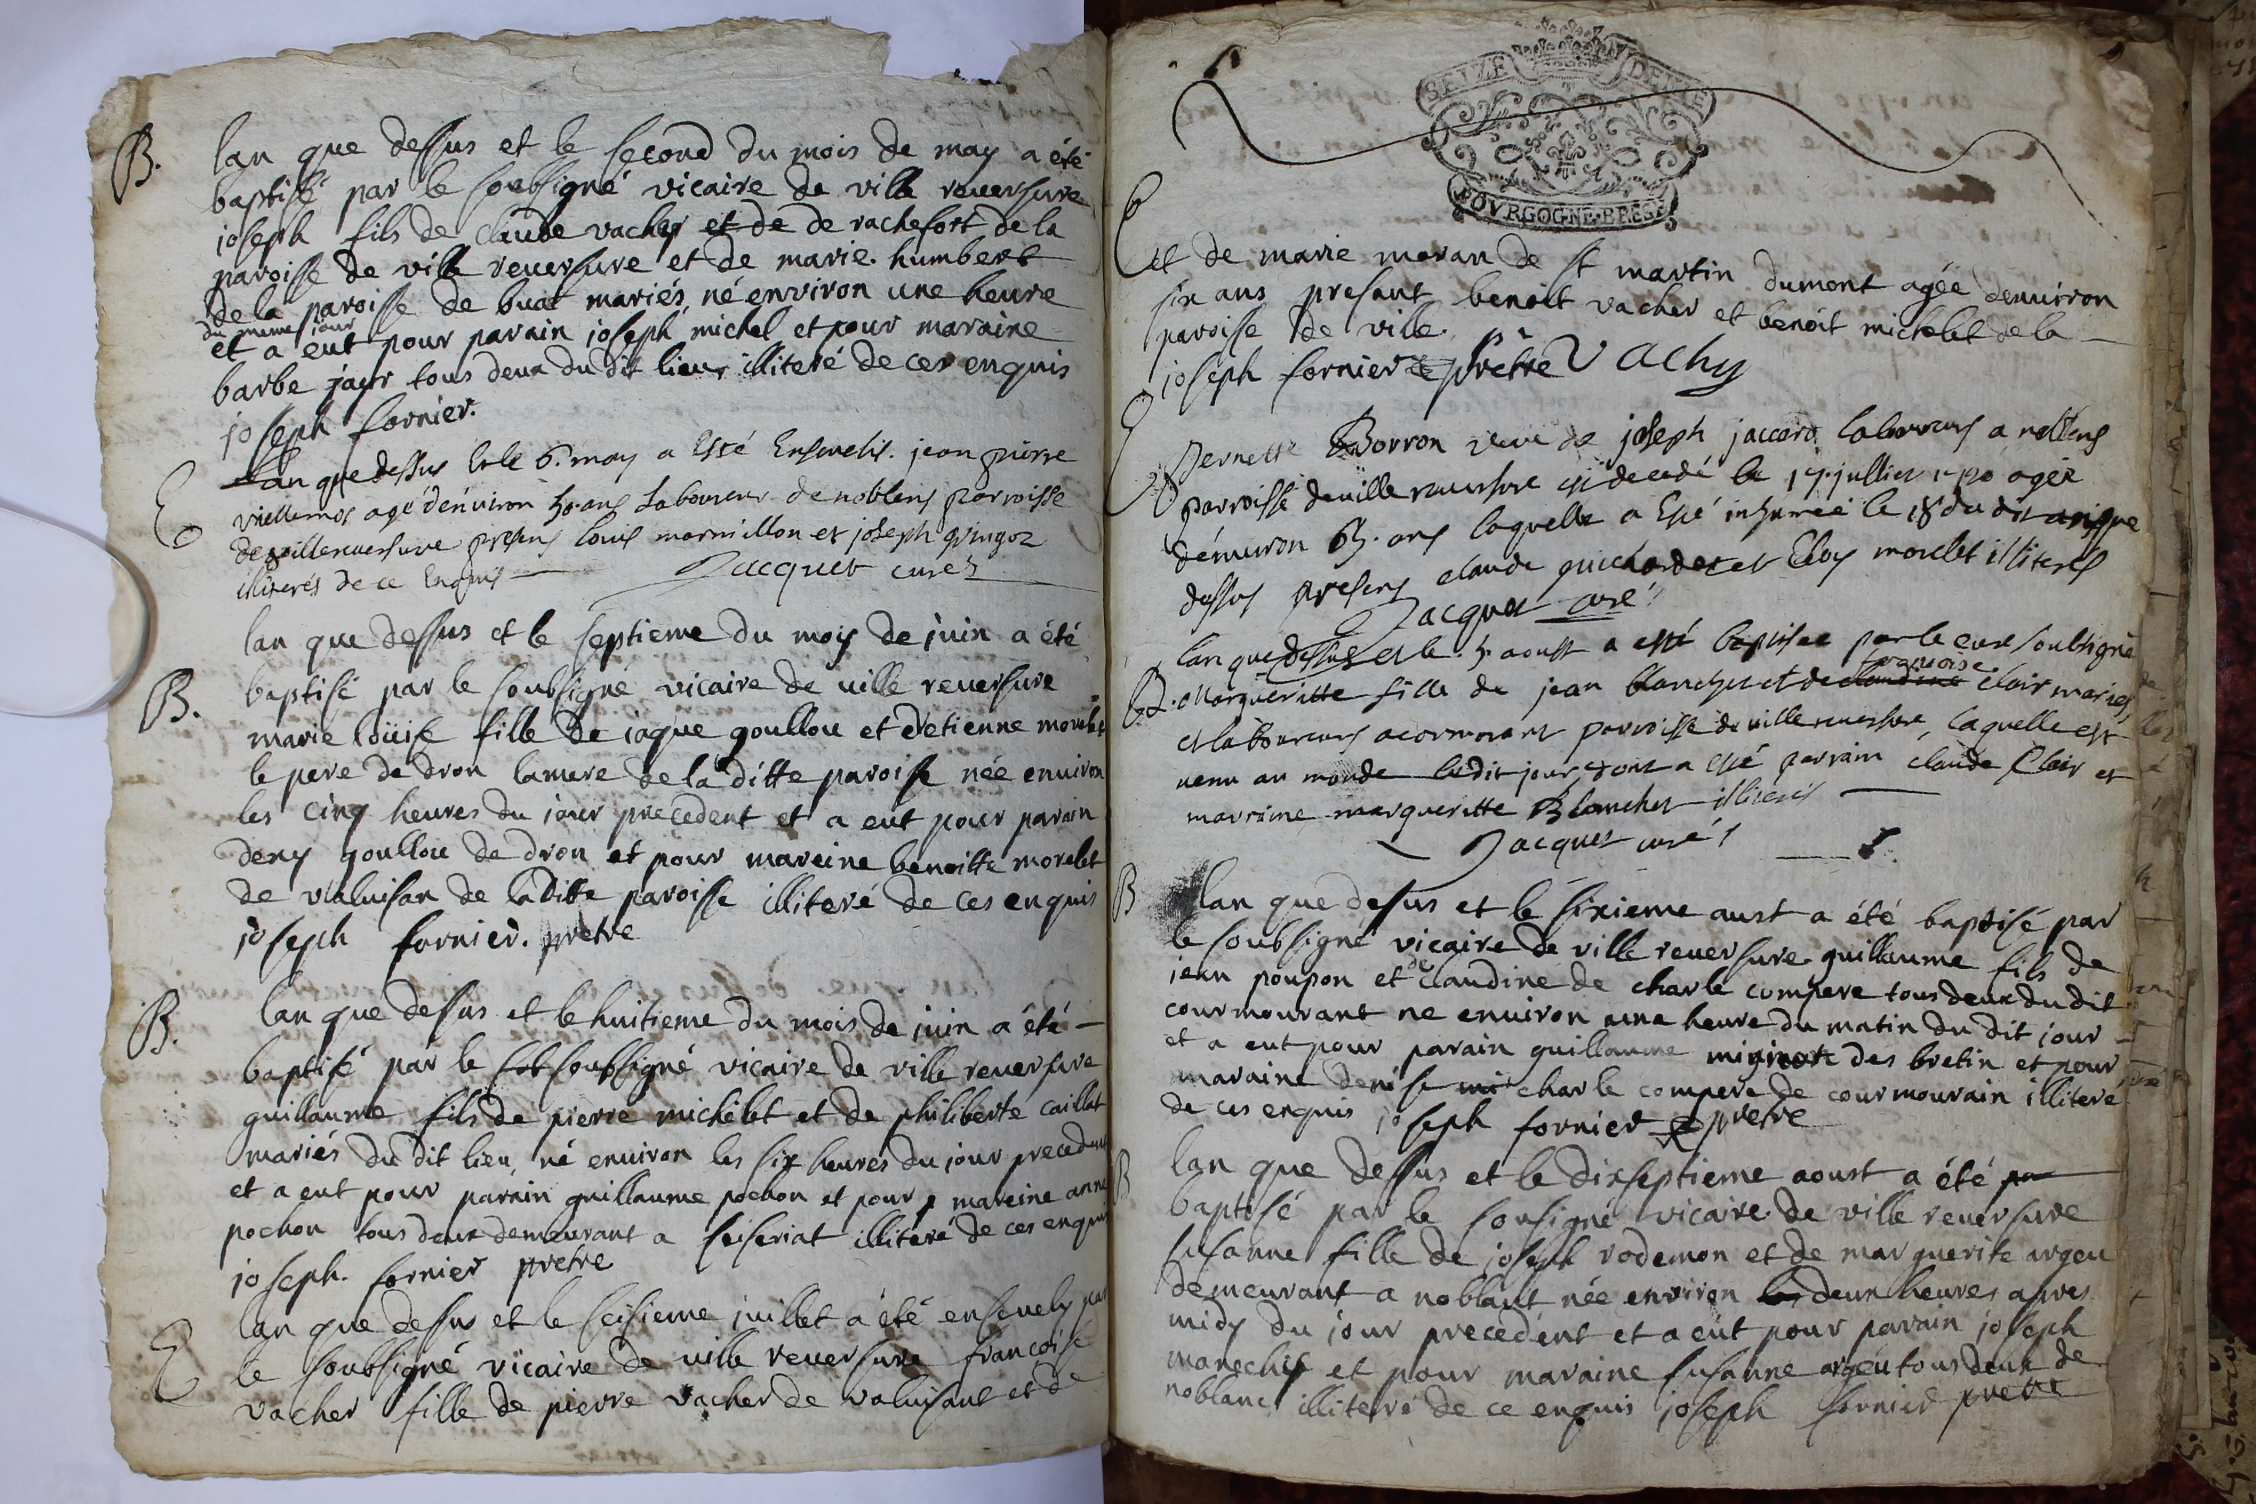 B.
lan que dessus et le second du mois de may a été
baptisé par le soubsigné vicaire de ville reversure
joseph fils de claude vacher et de de rachefort de la
paroisse de ville reversure et de marie humbert
de la paroisse de buat mariés, né environ une heure
du meme jour
et a eut pour parain joseph michel et pour maraine
barbe jayr tous deux du dit lieu, illiteré de ces enquis
joseph fornier.
E
lan que dessus et le 6. may a esté ensevelis jean pierre
agé denviron 50 ans laboureur de noblens parroisse
de villereversure presens louis marmillon et joseph
illiterés de ce enquis Jacquet curé
B.
lan que dessus et le septieme du moy de juin a été
baptisé par le soubsigné vicaire de ville reversure
marie loüise fille de jaque goullou et d'etienne morelet
le pere de dron la mere de la ditte paroisse née environ
les cinq heures du jour precedent et a eut pour parain
deny goullou de dron et pour mareine benoitte morelet
de valuisan de la ditte paroisse illiteré de ces enquis
joseph fornier. pretre
B.
lan que dessus et le huitieme du mois de juin a été
baptisé par le sob soubsigné vicaire de ville reversure
guillaume fils de pierre michelet et de philiberte caillat
mariés du dit lieu, né environ les six heures du jour precedent
et a eut pour parain guillaume pochon et pour mareine anne
pochon tous deux demeurant a seiseriat illiteré de ces enquis
joseph. fornier pretre
E
lan que dessus et le seisieme juillet a été ensevely par
le soubsigné vicaire de ville reversure francoise
vacher fille de pierre vacher de valuisant et de
SEIZE DEN
BOVRGOGNE·BRESSE
et de marie moran de st martin dumont agée denviron
six ans presant benoit vacher et benoit michelet de la
paroisse de ville.
joseph fornier pretre Vachy
E
pernette Borron veuve de joseph jaccard laboureur a noblens
parroisse de ville reversure est decedé le 17. juillet 1710 agée
denviron 65. ans laquelle a esté inhumée le 18 du dit
dessus presens claude guichardet et Eloy morelet illiterés
Jacquet curé
B.
lan que dessus et le 5. aoust a esté baptisee par le curé soubsigné
francoise
margueritte fille de jean blanchet et de claudine clair mariés
et laboureurs a cormorant parroisse de ville reversure, laquelle est
venu au monde le dit jour, dont a esté parrain claude Clair et
marraine margueritte Blanchet illiterés
Jacquet curé
B
lan que desus et le sixieme aust a été baptisé par
le soubsigné vicaire de ville reversure guillaume fils de
jean poupon et de claudine de charle compere tous deux du dit
courmourant ne environ une heure du matin du dit jour
et a eut pour parain guillaume des bretin et pour
maraine denise mi charle compere de courmourain illiteré
de ces enquis joseph fornier pretre
B
lan que dessus et le dixseptieme aoust a été par
baptisé par le sousigné vicaire de ville reversure
susanne fille de joseph rodemon et de marguerite argeu
demeurant a noblant née environ les deux heures apres
midy du jour precedent et a eut pour parain joseph
marechis et pour maraine susanne argeu tous deux de
noblanc illiteré de ce enquis joseph fornier pretre